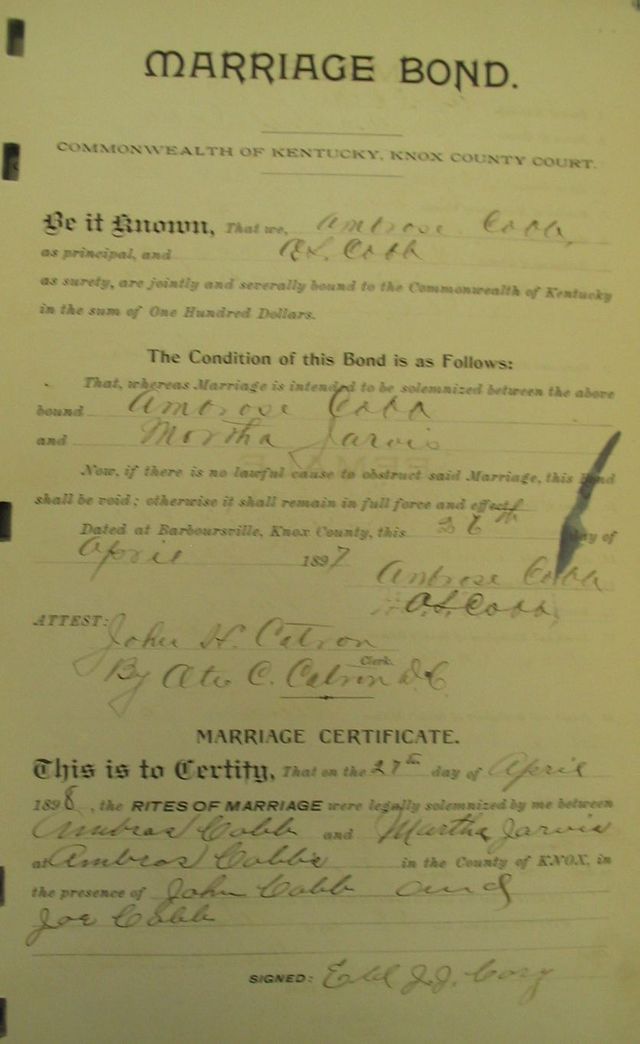 MARRIAGE BOND.
COMMONWEALTH OF KENTUCKY, KNOX COUNTY COURT.
Be it Known, That we, Ambrose Cobb,
as principal, and A L. Cobb
as surety, are jointly and severally bound to the Commonwealth of Kentucky
in the sum of One Hundred Dollars.
The Condition of this Bond is as Follows:
That, whereas Marriage is intended to be solemnized between the above
bound Ambrose Cobb
and Mortha Jarvis
Now, if there is no lawful cause to obstruct said Marriage, this Bond
shall be void; otherwise it shall remain in full force and effect.
Dated at Barboursville, Knox County, this 26th day of
April 1897
Ambrose Cobb
A. L. Cobb,
ATTEST:
John H. Catron
Clerk.
By C. Catron D.C.
MARRIAGE CERTIFICATE.
This is to Certify, That on the 27th day of April
1898, the RITES OF MARRIAGE were legally solemnized by me between
Ambros Cobb and Martha Jarvis
at Ambros Cobbs in the County of KNOX, in
the presence of John Cobb and
Joe Cobb
SIGNED: J. J.